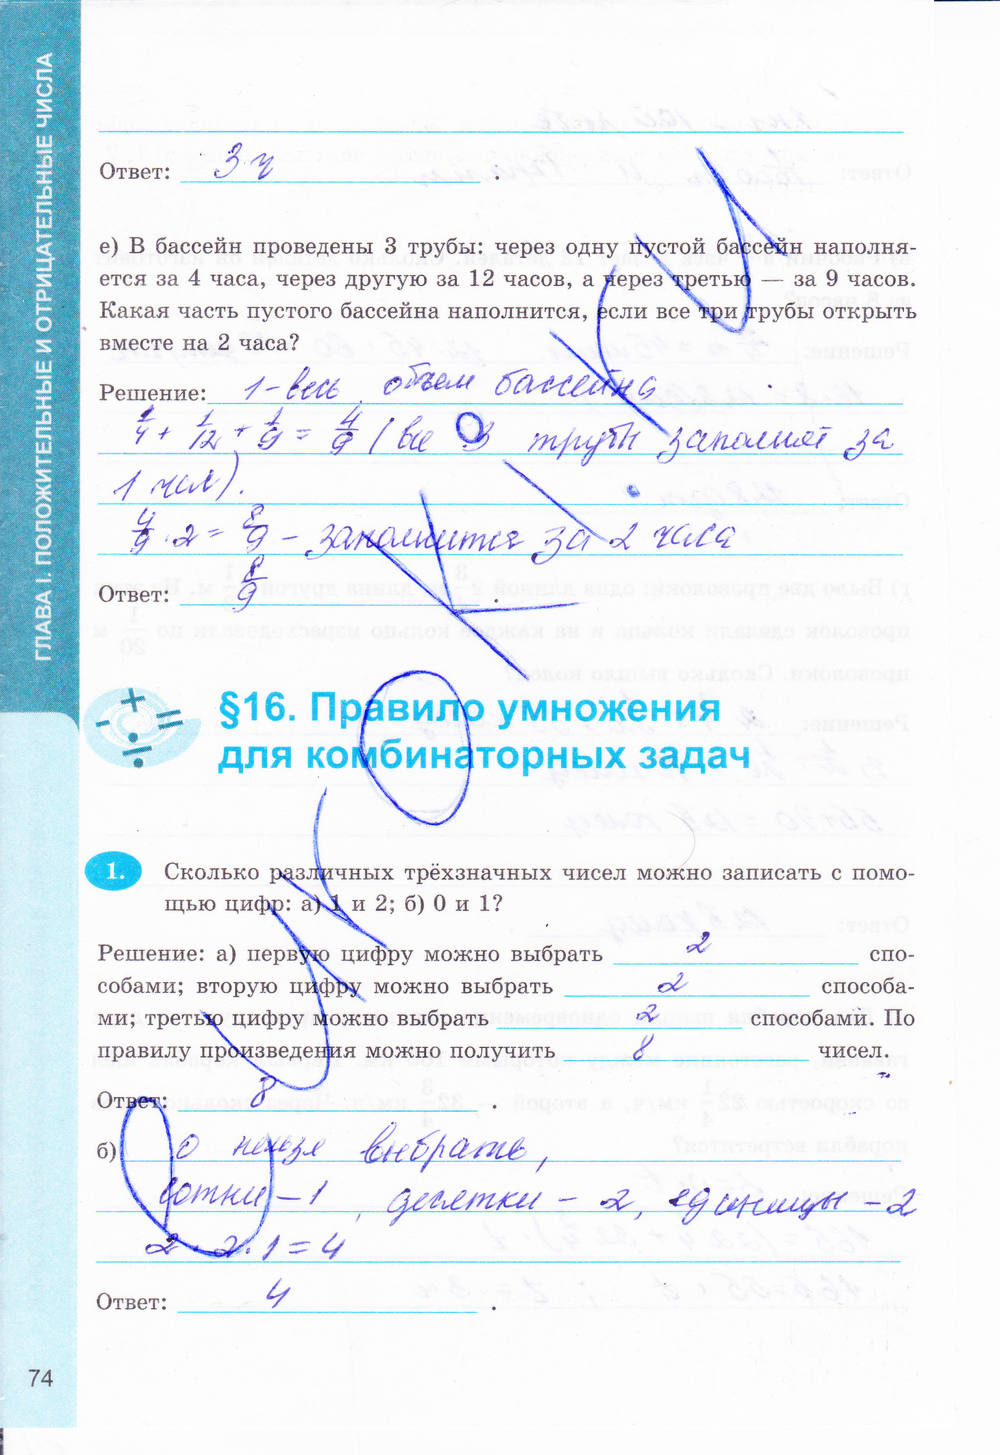 ГЛАВА I. ПОЛОЖИТЕЛЬНЫЕ И ОТРИЦАТЕЛЬНЫЕ ЧИСЛА
Ответ: 3 ч .
е) В бассейн проведены 3 трубы: через одну пустой бассейн наполня-
ется за 4 часа, через другую за 12 часов, а через третью — за 9 часов.
Какая часть пустого бассейна наполнится, если все три трубы открыть
вместе на 2 часа?
Решение: 1 - весь объем бассейна
1/4 + 1/12 + 1/9 = 4/9 (все 3 трубы заполнят за
1 час).
4/9 · 2 = 8/9 - заполнится за 2 часа
Ответ: 8/9 .
§16. Правило умножения
для комбинаторных задач
1. Сколько различных трёхзначных чисел можно записать с помо-
щью цифр: а) 1 и 2; б) 0 и 1?
Решение: а) первую цифру можно выбрать 2 спо-
собами; вторую цифру можно выбрать 2 способа-
ми; третью цифру можно выбрать 2 способами. По
правилу произведения можно получить 8 чисел.
Ответ: 8 .
б) 0 нельзя выбрать,
сотни - 1, десятки - 2, единицы - 2
2 · 2 · 1 = 4
Ответ: 4 .
74